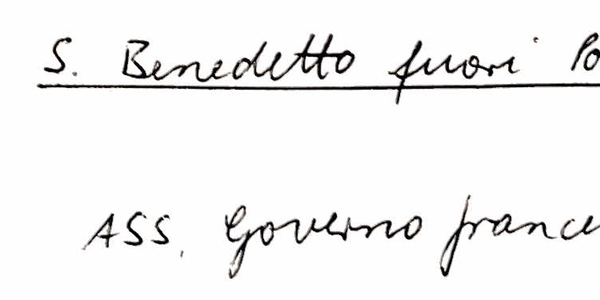 S. Benedetto fuori Po
ASS. Governo france